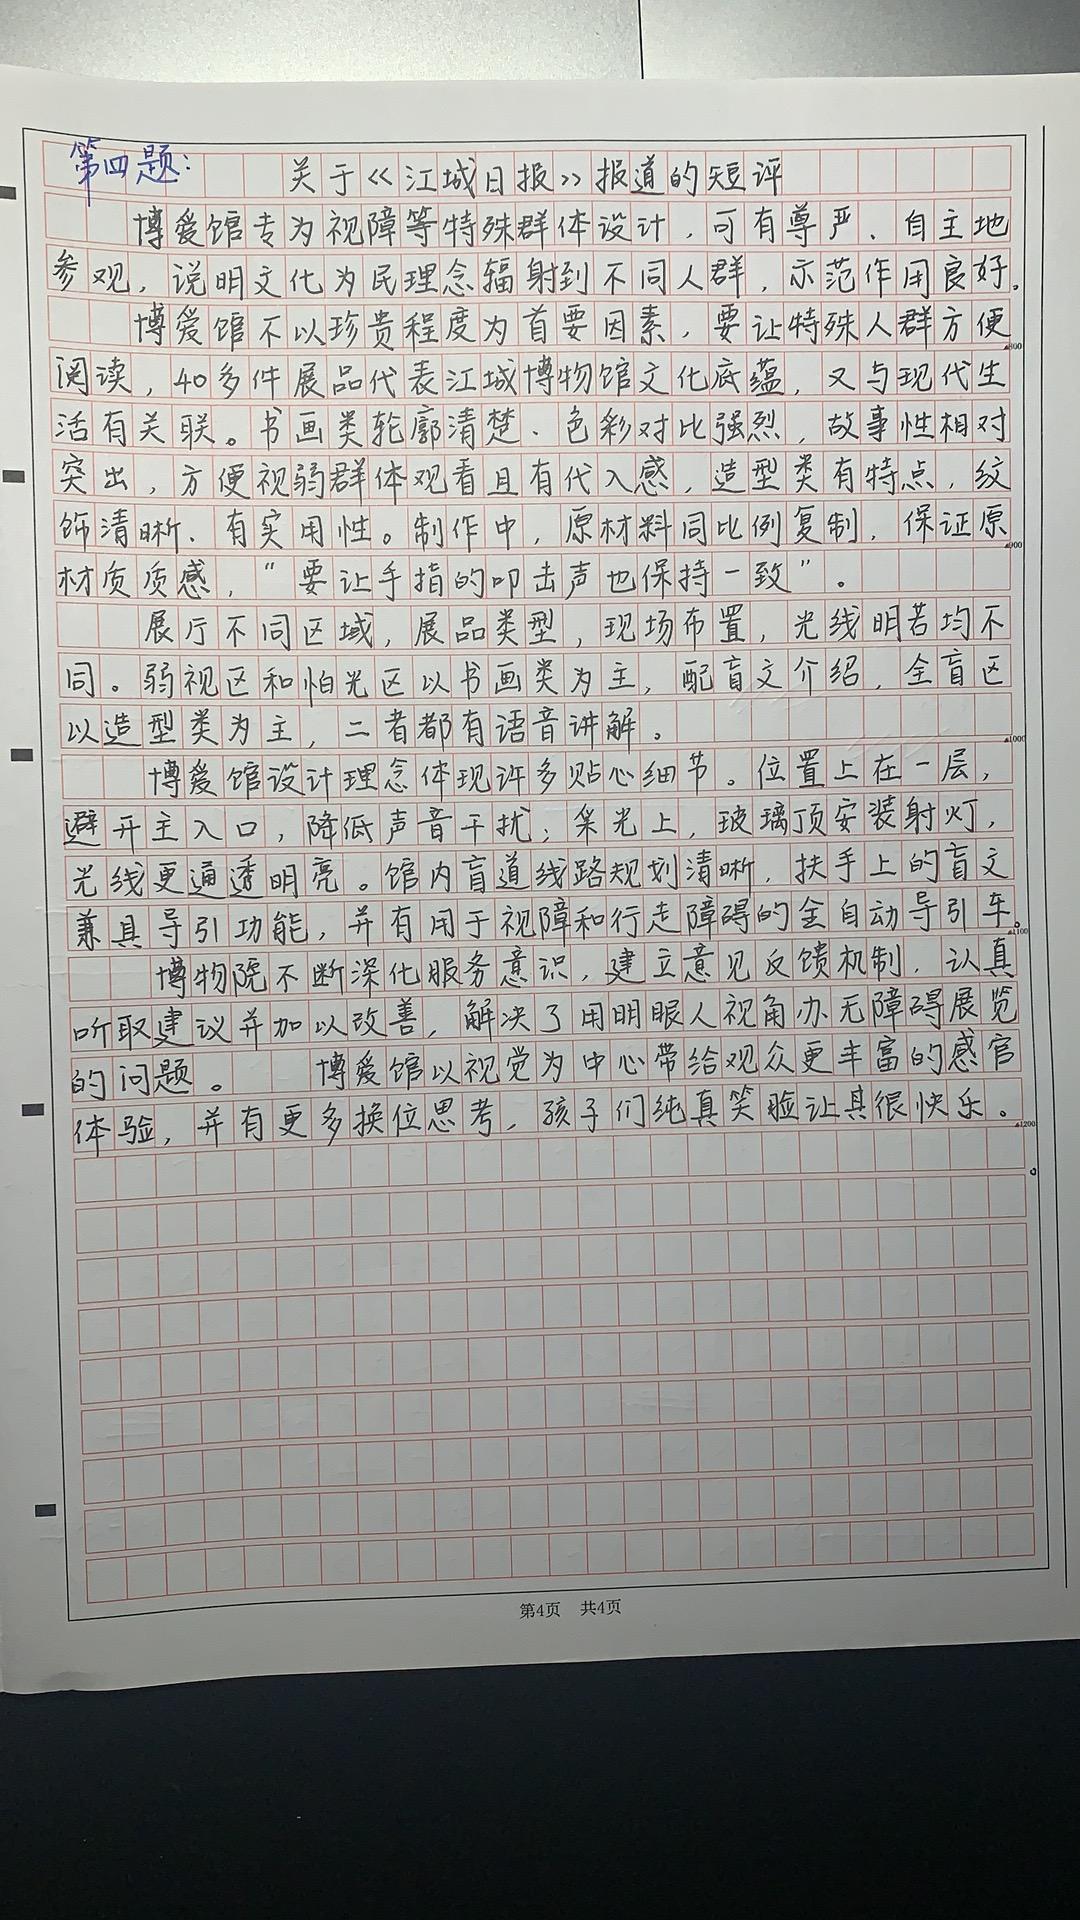 第四题:
关于《江城日报》报道的短评
博爱馆专为视障等特殊群体设计,可有尊严、自主地
参观,说明文化为民理念辐射到不同人群,示范作用良好。
博爱馆不以珍贵程度为首要因素,要让特殊人群方便
800
阅读,40多件展品代表江城博物馆文化底蕴,又与现代生
活有关联。书画类轮廓清楚、色彩对比强烈,故事性相对
突出,方便视弱群体观看且有代入感,造型类有特点,纹
饰清晰、有实用性。制作中,原材料同比例复制,保证原
900
材质质感,“要让手指的叩击声也保持一致”。
展厅不同区域,展品类型,现场布置,光线明若均不
同。弱视区和怕光区以书画类为主,配盲文介绍,全盲区
以造型类为主,二者都有语音讲解。
1000
博爱馆设计理念体现许多贴心细节。位置上在一层,
避开主入口,降低声音干扰;采光上,玻璃顶安装射灯,
光线更通透明亮。馆内盲道线路规划清晰,扶手上的盲文
兼具导引功能,并有用于视障和行走障碍的全自动导引车。
1100
博物院不断深化服务意识,建立意见反馈机制,认真
听取建议并加以改善,解决了用明眼人视角办无障碍展览
的问题。 博爱馆以视觉为中心带给观众更丰富的感官
体验,并有更多换位思考,孩子们纯真笑脸让其很快乐。
1200
第4页 共4页